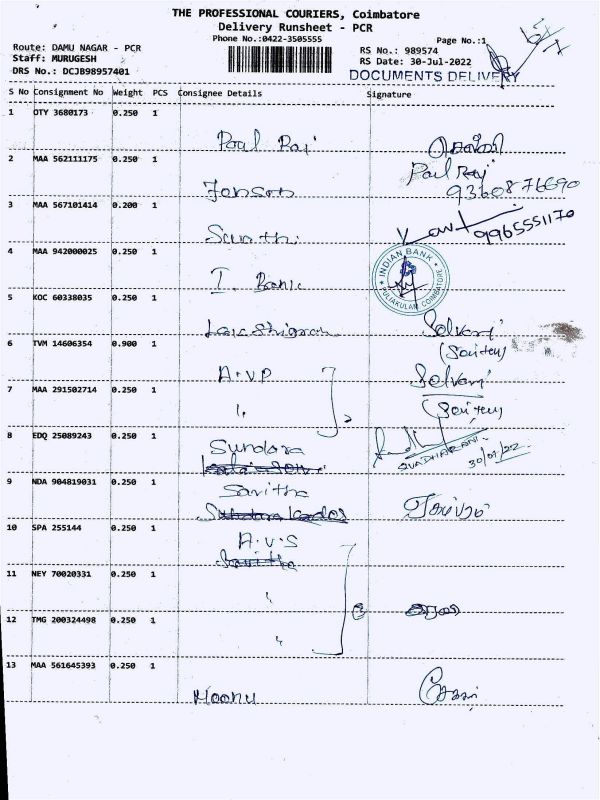 THE PROFESSIONAL COURIERS, Coimbatore
Delivery Runsheet - PCR
Phone No.:0422-3505555
Page No.:1
Route: DAMU NAGAR - PCR
Staff: MURUGESH
DRS No.: DCJB98957401
RS No.: 989574
RS Date: 30-Jul-2022
DOCUMENTS DELIVERY
S No Consignment No Weight PCS Consignee Details Signature
1 OTY 3680173 0.250 1
Paul Raj
2 MAA 562111175 0.250 1
Paul Raj
9360876690
Jenson
3 MAA 567101414 0.200 1
9965551170
4 MAA 942000025 0.250 1
I. Bank
INDIAN BANK
PULIAKULAM COIMBATORE
5 KOC 60338035 0.250 1
Selvam
6 TVM 14606354 0.900 1
A.V.P
Selvam
7 MAA 291502714 0.250 1
8 EDQ 25089243 0.250 1
Sundara
30/07/22
9 NDA 904819031 0.250 1
Savitha
10 SPA 255144 0.250 1
A.V.S
Savitha
11 NEY 70020331 0.250 1
12 TMG 200324498 0.250 1
13 MAA 561645393 0.250 1